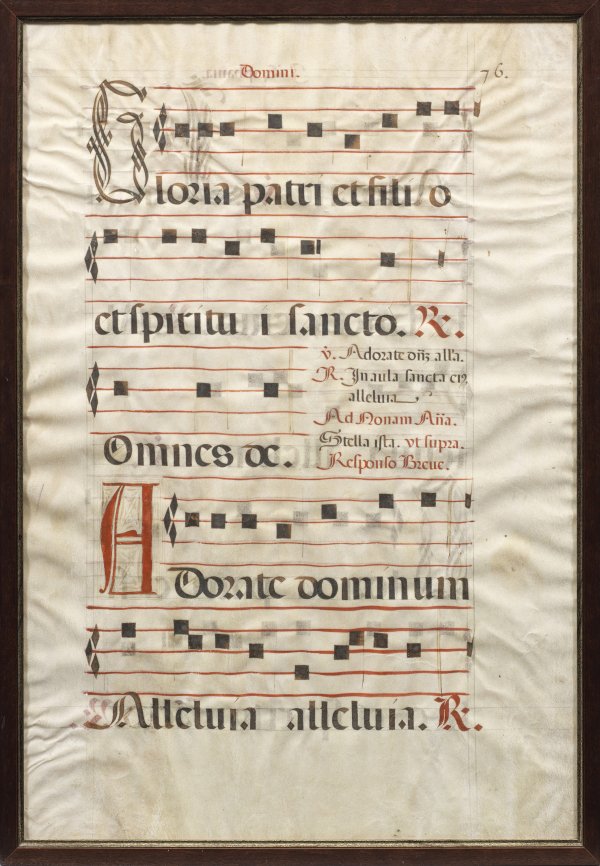 Domini. 76.
Gloria patri et filio
et spiritui sancto. R.
v. Adorate dnz alla.
R. In aula sancta eiz
alleluia
Ad Nonam Aña.
Stella ista. vt supra.
Responso Breue.
Omnes de.
Adorate dominum
Alleluia alleluia. R.